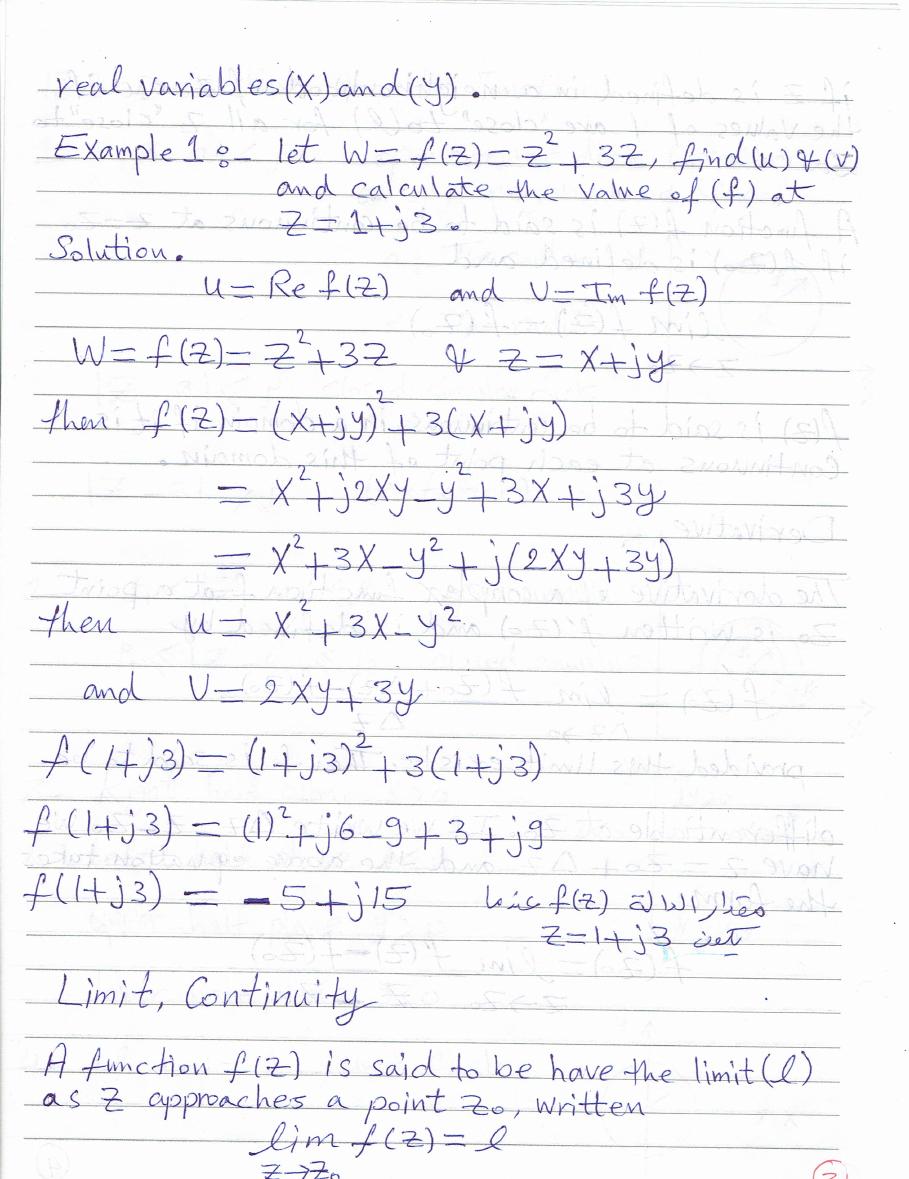 real variables (x) and (y).
Example 1 :- let W = f(z) = z² + 3z, find (u) & (v)
and calculate the value of (f) at
z = 1 + j3.
Solution.
u = Re f(z) and v = Im f(z)
W = f(z) = z² + 3z & z = x + jy
then f(z) = (x + jy)² + 3(x + jy)
= x² + j2xy - y² + 3x + j3y
= x² + 3x - y² + j(2xy + 3y)
then u = x² + 3x - y²
and v = 2xy + 3y
f(1 + j3) = (1 + j3)² + 3(1 + j3)
f(1 + j3) = (1)² + j6 - 9 + 3 + j9
f(1 + j3) = -5 + j15 مقدار الدالة f(z) عندما
z = 1 + j3
Limit, Continuity
A function f(z) is said to be have the limit (l)
as z approaches a point z₀, written
lim f(z) = l
z → z₀